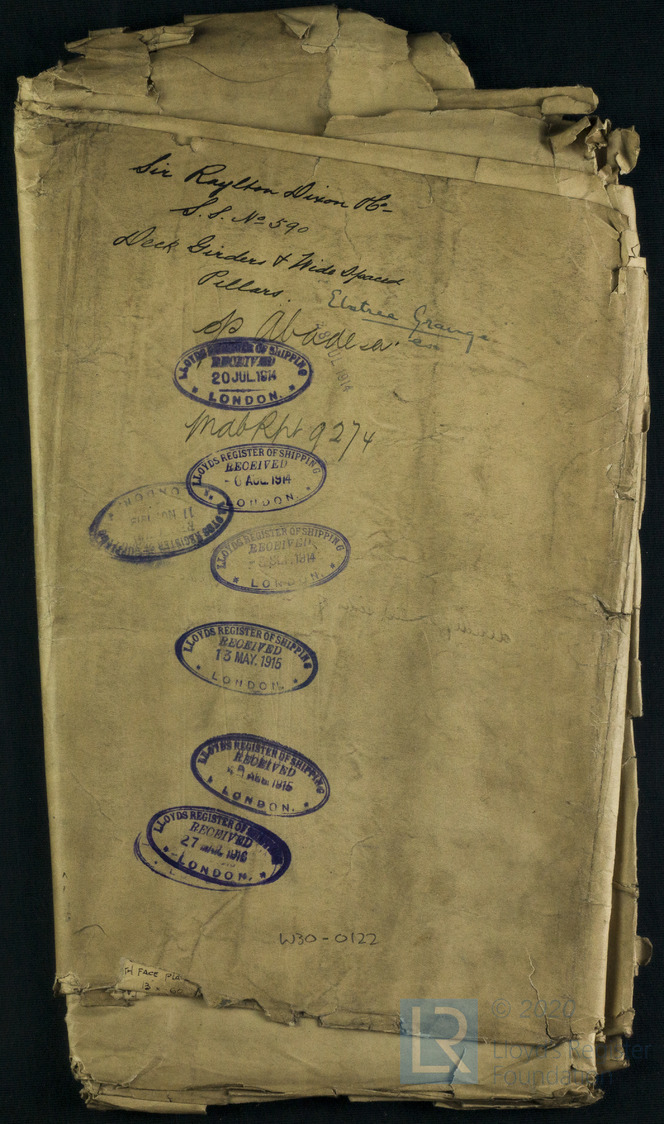 Sir Raylton Dixon & Co
S.S. No 590
Deck Girders & Wide Spaced
Pillars.
Elstree Grange
Abadesa.
LLOYDS REGISTER OF SHIPPING
RECEIVED
20 JUL. 1914
LONDON.
JUL 1914
Mdb Rpt 9274
LLOYDS REGISTER OF SHIPPING
RECEIVED
AUG. 1914
LONDON.
LLOYDS REGISTER OF SHIPPING
11 NOV.
LONDON.
LLOYDS REGISTER OF SHIPPING
RECEIVED
1914
LONDON.
LLOYDS REGISTER OF SHIPPING
RECEIVED
13 MAY. 1915
LONDON.
LLOYDS REGISTER OF SHIPPING
RECEIVED
AUG. 1915
LONDON.
LLOYDS REGISTER OF SHIPPING
RECEIVED
27 1916
LONDON.
W30-0122
FACE
LR
© 2020
Lloyd's Register
Foundation